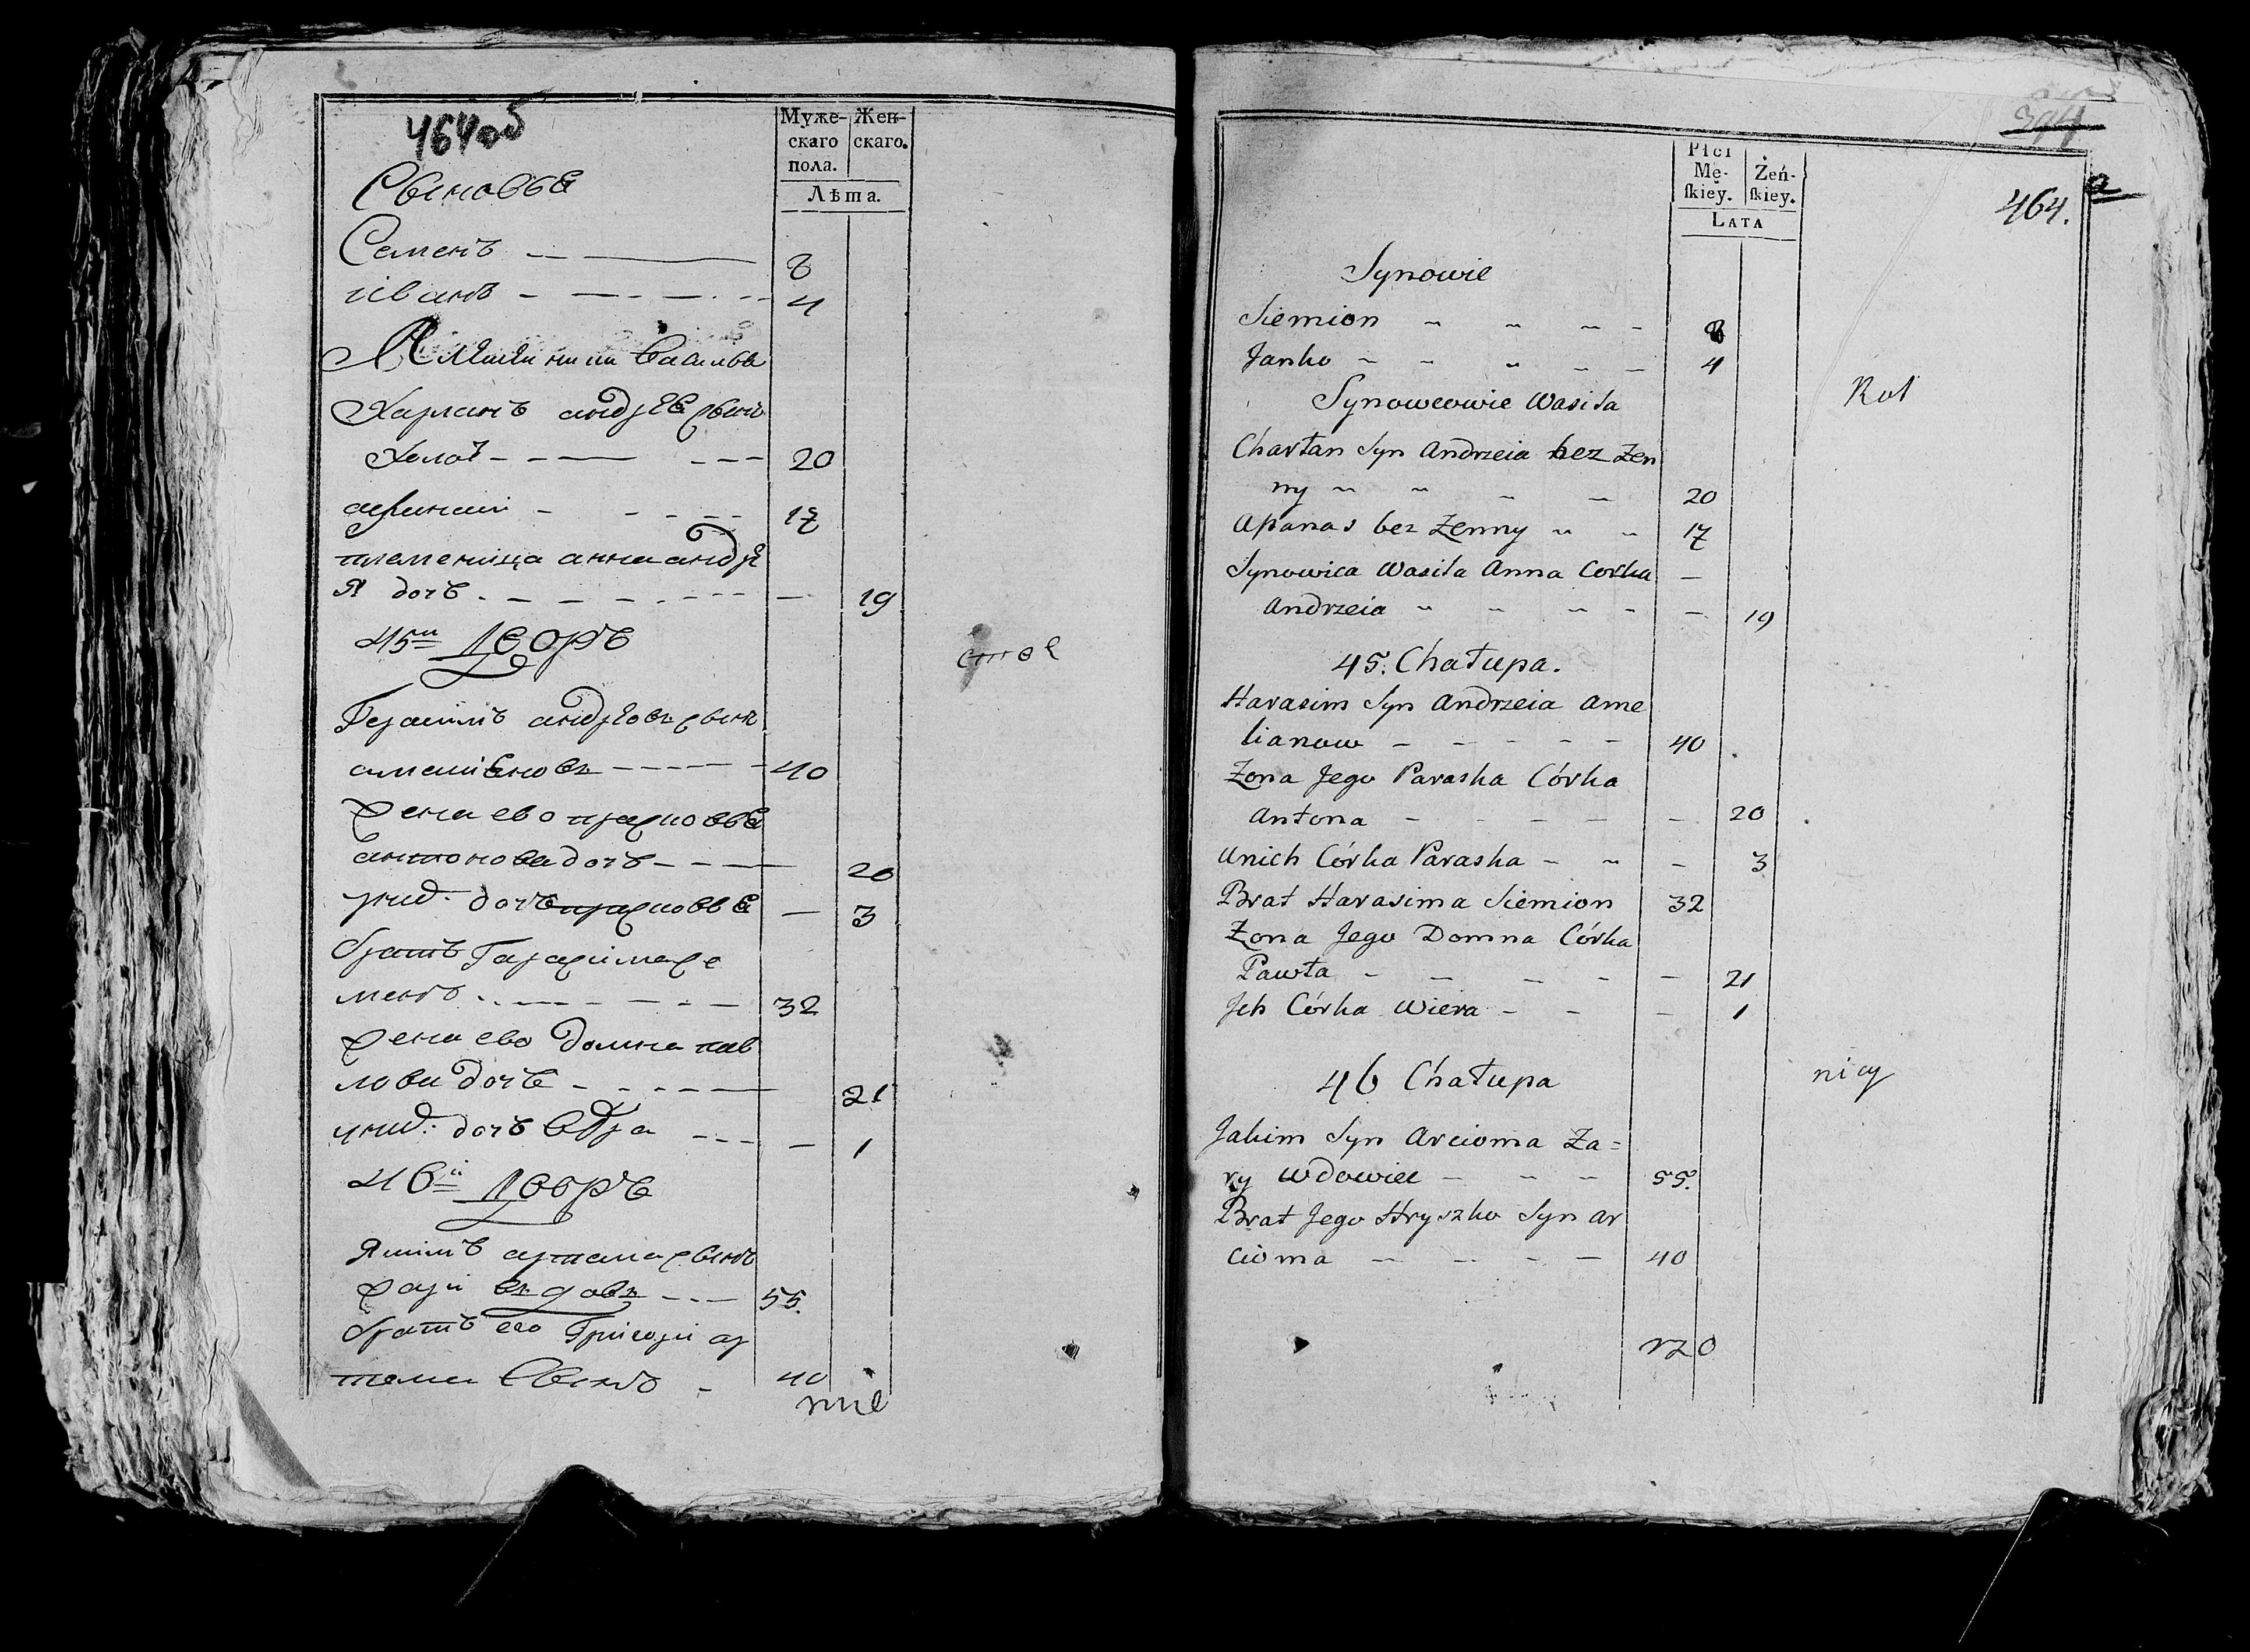 464об
Муже-
скаго
пола.
Жен-
скаго.
Лѣта.
Сыновья
Семенъ 8
іванъ 4
Племянники василья
Харланъ андрея сынъ
Холостъ 20
афанаси 17
племеница анна андре
я дочъ 19
45й Дворъ
Герасимъ андрѣевъ сынъ
амельяновъ 40
жена ево прасковья
антонова дочъ 20
у них дочь прасковья 3
братъ Гарасима се
менъ 32
жена ево домна пав
лова дочъ 21
у них дочъ вѣра 1
46й Дворъ
Якимъ артема сынъ
жари вдовъ 55.
братъ его Григори ар
тема Сынъ 40
Płci
Mę-
ſkiey.
Żeń-
ſkiey.
LATA
394
464. a
Synowie
Siemion 8
Janko 4
Synowcowie Wasila
Rot
Charłan Syn Andrzeia bez Żen
ny 20
Apanas bez Żenny 17
Synowica Wasila Anna Corka
Andrzeia 19
45. Chałupa.
Harasim Syn Andrzeia Ame
lianow 40
Żona Jego Paraska Córka
Antona 20
Unich Córka Paraska 3
Brat Harasima Siemion 32
Żona Jego Domna Córka
Pawła 21
Jch Córka Wiera 1
46 Chałupa
nicy
Jakim Syn Arcioma Ża=
ry Wdowiec 55.
Brat Jego Hryszko Syn Ar
cioma 40